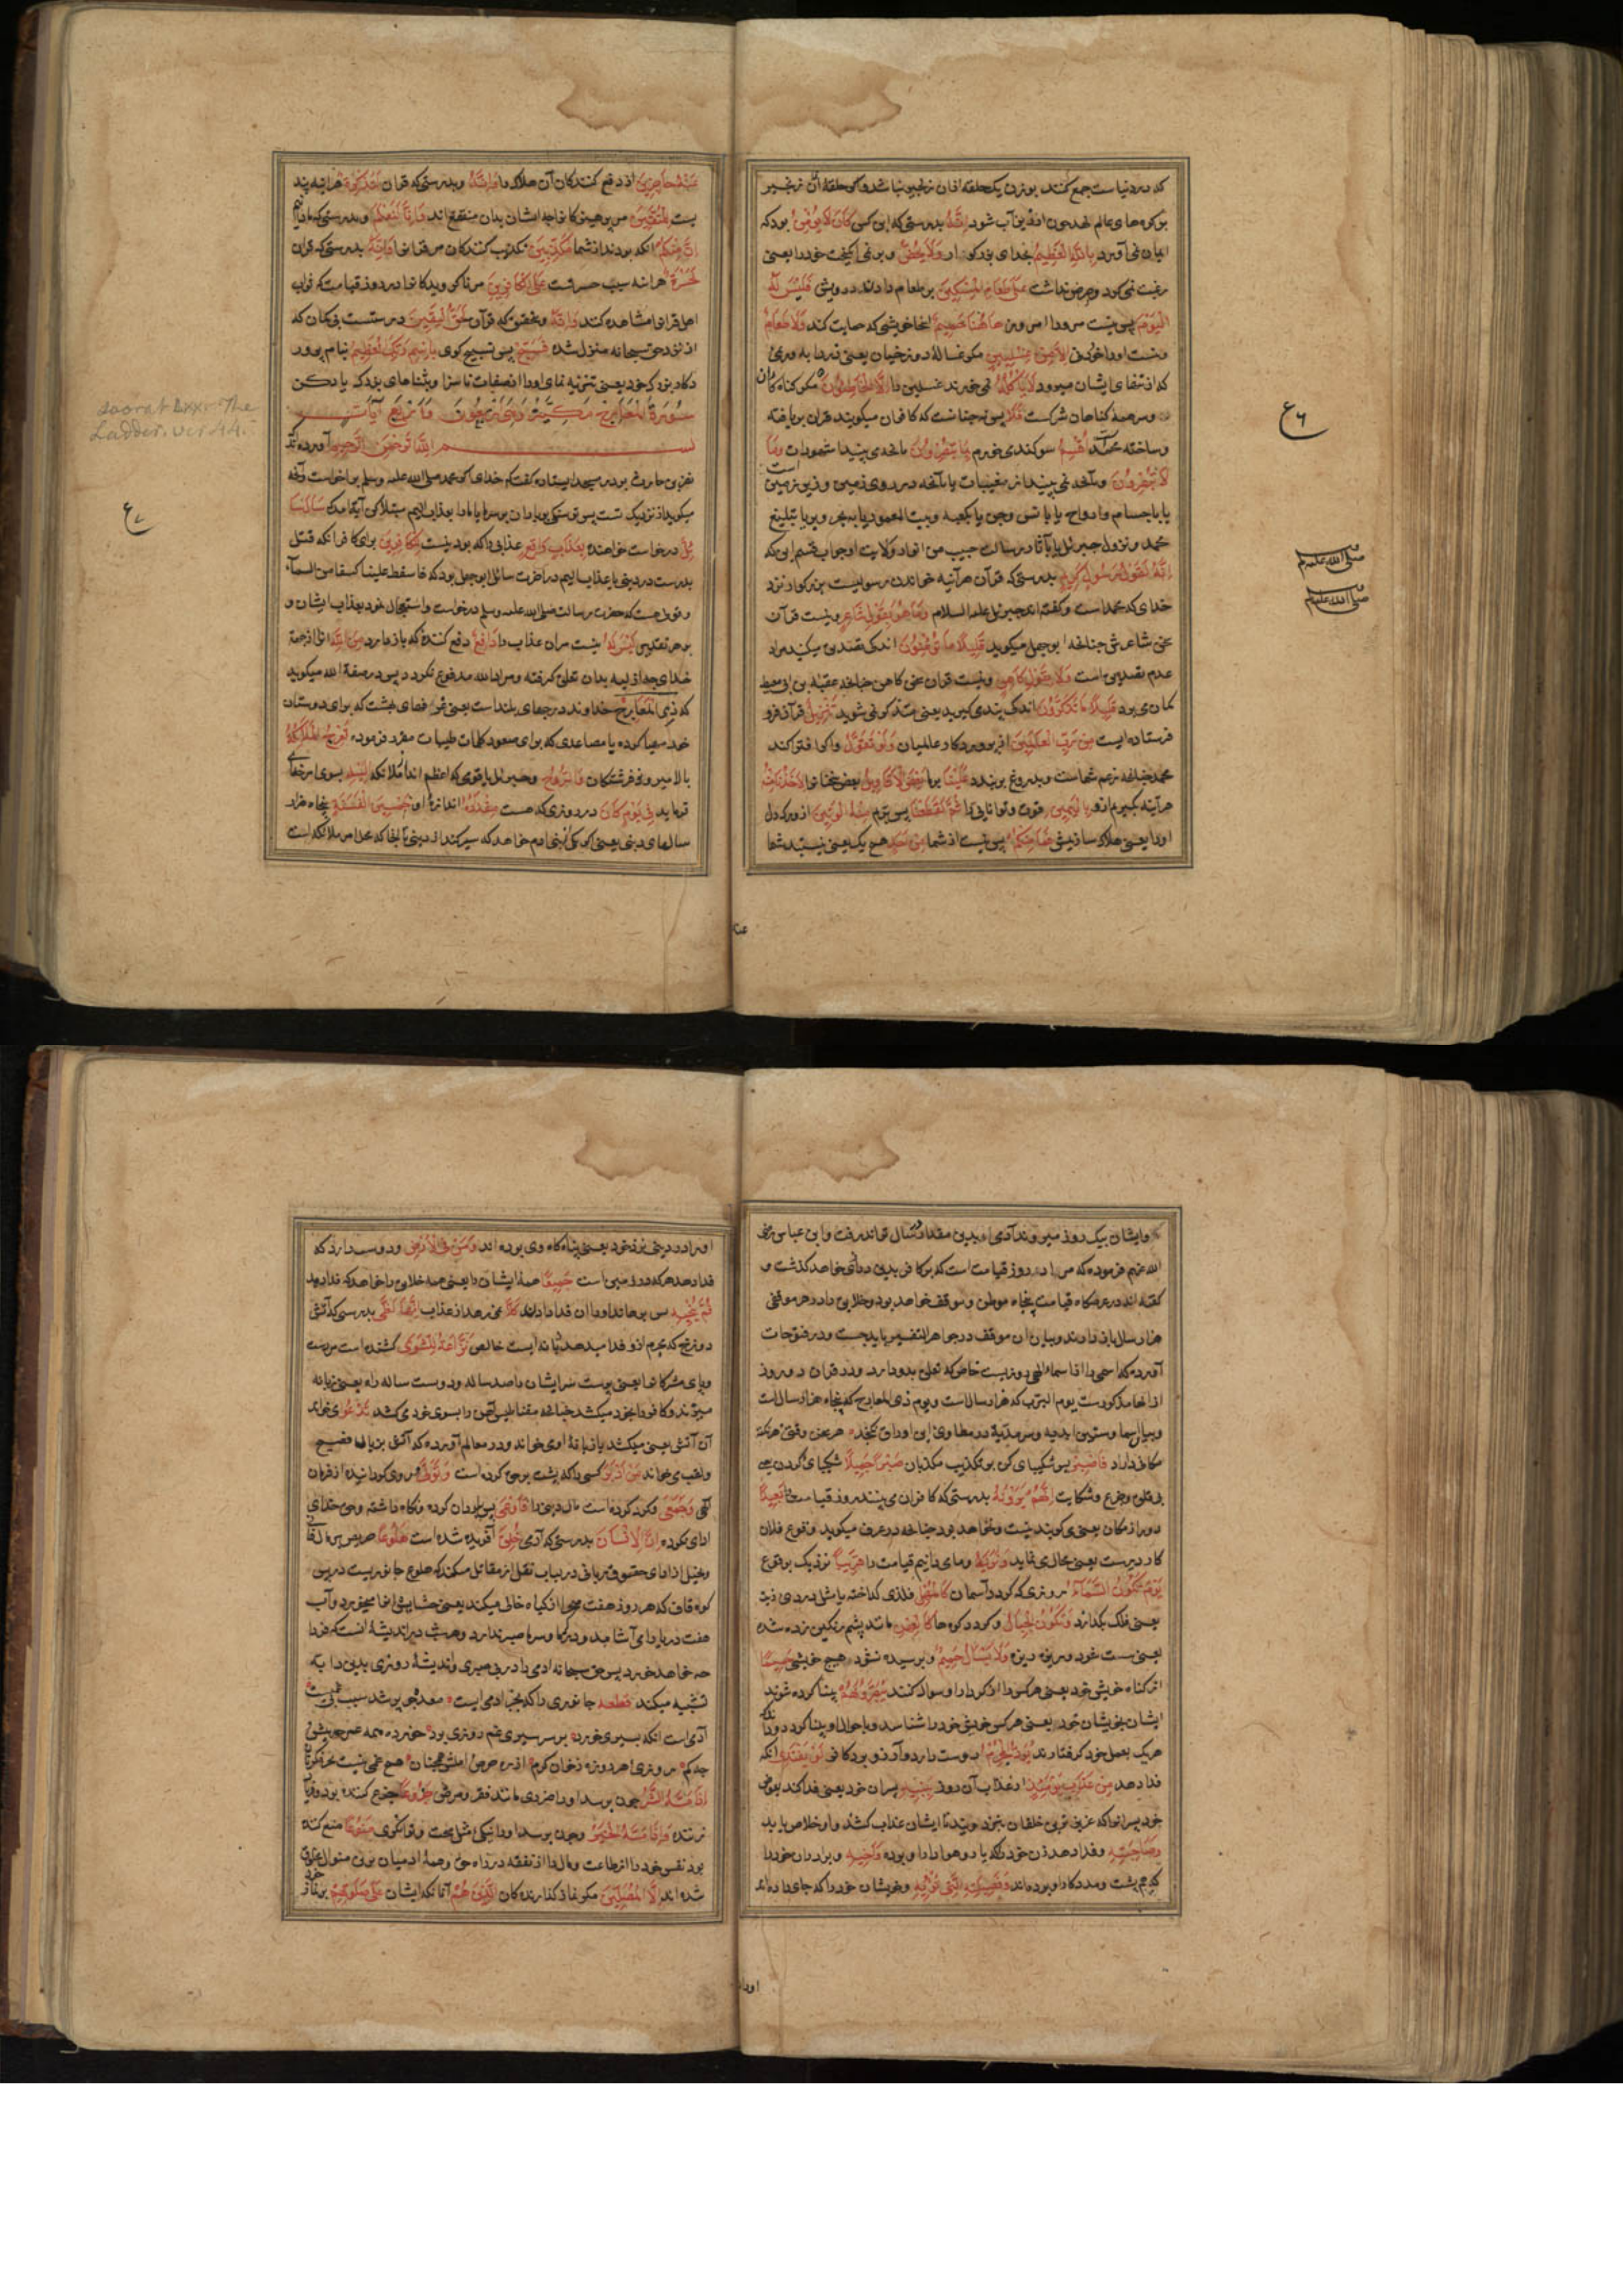 که در دنیاست جمع کنند بوزن یک حلقه ازان زنجیر نباشد و اکر حلقهٔ ازان زنجیر
بر کوه های عالم نهند چون ارزیز آب شود اِنَّهُ بدرستی که این کس کَانَ لَا یُؤْمِنُ بود که
ایمان نمی آورد بِاللّٰهِ الْعَظِیمِ بخدای بزرکوار وَلَا یَحُضُّ و بر نمی انکیخت خود را یعنی
رغبت نمی کرد و حرص نداشت عَلَیٰ طَعَامِ الْمِسْکِینِ بر طعام دادن درویش فَلَیْسَ لَهُ
الْیَوْمَ پس نیست مر او را امروز هَاهُنَا حَمِیمٌ اینجا خویشی که حمایت کند وَلَا طَعَامٌ
و نیست او را خوردنی اِلَّا مِنْ غِسْلِینٍ مکر غسالهٔ دوزخیان یعنی زرداب و ریمی
که از تنهای ایشان میرود لَا یَأْکُلُهُ نمی خورند غسلین را اِلَّا الْخَاطِئُونَ مکر کناه کاران
و سر همهٔ کناهان شرکست فَلَا پس نه چنانست که کافران میکویند قران بر بافته
و ساختهٔ محمد است اُقْسِمُ سوکند می خورم بِمَا تُبْصِرُونَ بانچه می بینید از مشهودات وَمَا
لَا تُبْصِرُونَ و بانچه نمی بینید از مغیبات یا بانچه در روی زمین و زیر زمین است
یا باجسام و ارواح یا بانس و جن یا بکعبه و بیت المعمور یا ببحر و بر یا بتبلیغ
محمد و نزول جبرئیل یا بآثار رسالت حبیب من و انوار ولایت او جواب قسم این که
اِنَّهُ لَقَوْلُ رَسُولٍ کَرِیمٍ بدرستی که قرآن هرآینه خواندن رسولیست بزرکوار نزد
خدای که محمد است و کفته اند جبرئیل علیه السلام وَمَا هُوَ بِقَوْلِ شَاعِرٍ و نیست قرآن
سخن شاعر چنانچه ابو جهل میکوید قَلِیلًا مَا تُؤْمِنُونَ اندک تصدیق میکنید مراد
عدم تصدیق است وَلَا بِقَوْلِ کَاهِنٍ و نیست قران سخن کاهن چنانچه عقبة بن ابی معیط
کمان می برد قَلِیلًا مَا تَذَکَّرُونَ اندک پندی کیرید یعنی متذکر نمی شوید تَنْزِیلٌ قرآن فرو
فرستاده ایست مِنْ رَبِّ الْعَالَمِینَ از پروردکار عالمیان وَلَوْ تَقَوَّلَ و اکر افترا کند
محمد چنانچه زعم شماست و بدروغ بر بندد عَلَیْنَا بر ما بَعْضَ الْاَقَاوِیلِ بعضی سخنان لَاَخَذْنَا مِنْهُ
هرآینه بکیریم ازو بِالْیَمِینِ قوت و توانایی را ثُمَّ لَقَطَعْنَا پس ببریم مِنْهُ الْوَتِینَ ازو رک دل
او را یعنی هلاک سازیمش فَمَا مِنْکُمْ پس نیست از شما مِنْ اَحَدٍ هیچ یک یعنی نیستید شما
ع ٦
صلی الله علیه وسلم
صلی الله علیه وسلم
عنه
عَنْهُ حَاجِزِینَ از دفع کنندکان آن هلاک را وَاِنَّهُ و بدرستی که قران لَتَذْکِرَةٌ هرآینه پند
یست لِلْمُتَّقِینَ مر پرهیزکارانرا چه ایشان بدان منتفع اند وَاِنَّا لَنَعْلَمُ و بدرستی که ما دانیم
اَنَّ مِنْکُمْ انکه بودند از شما مُکَذِّبِینَ تکذیب کنندکان مر قرانرا وَاِنَّهُ بدرستی که قرآن
لَحَسْرَةٌ هرآنه سبب حسرتست عَلَی الْکَافِرِینَ مر ناکرویدکانرا در روز قیامت که ثواب
اهل قرانرا مشاهده کنند وَاِنَّهُ و بتحقیق که قرآن لَحَقُّ الْیَقِینِ درستست بی کمان که
از نزد حق سبحانه منزل شده فَسَبِّحْ پس تسبیح کوی بِاسْمِ رَبِّکَ الْعَظِیمِ بنام پرور
دکار بزرک خود یعنی تنزیه نمای او را از صفات ناسزا و بثناهای بزرک یاد کن
سُورَةُ الْمَعَارِجِ مَکِّیَّةٌ وَهِیَ اَرْبَعُونَ وَاَرْبَعُ آیَات
بسم اللّٰه الرحمن الرحیم آورده اند
نضر بن حارث بود در مسجد ایستاده کفت کر خدای کر محمد صلی الله علیه وسلم بر حقست و آنچه
میکوید از نزدیک تست پس تو سنکی بباران بر سر ما یا ما را بعذاب الیم مبتلا کن آیة آمد که سَاَلَ سَا
ئِلٌ درخواست خواهنده بِعَذَابٍ وَاقِعٍ عذابی را که بودنیست لِلْکَافِرِینَ برای کافرانکه قتل
بدرست در دنیی یا عذاب الیم در آخرت سائل ابو جهل بود که فاسقط علینا کسفا من السمآء
و قولی هست که حضرت رسالت صلی الله علیه وسلم درخواست و استعجال نمود بعذاب ایشان و
بر هر تقدیر لَیْسَ لَهُ نیست مران عذاب را دَافِعٌ دفع کننده که باز دارد مِنَ اللّٰهِ از جهة
خدای چه ازلیه بدان تعلق کرفته و مراد الله مدفوع نکردد پس در صفة الله میکوید
که ذِی الْمَعَارِجِ خداوند درجهای بلند است یعنی غرفهای بهشت که برای دوستان
خود مهیا کرده یا مصاعدی که برای صعود کلمات طیبات مقرر فرموده تَعْرُجُ الْمَلَائِکَةُ
بالا میروند فرشتکان وَالرُّوحُ و جبرئیل یا قومی که اعظم اند از ملائکه اِلَیْهِ بسوی
فرماید فِی یَوْمٍ کَانَ در روزی که هست مِقْدَارُهُ اندازهٔ او خَمْسِینَ اَلْفَ سَنَةٍ پنجاه هزار
سالهای دنیی یعنی اکر یکی از بنی ادم خواهد که سیر کند از دنیی تا آنجا که محل امر ملائکه است
ع ٧
Soorat LXX. The
Ladder. ver 44.
و ایشان بیک روز میروند آدمی بدین مقدار سال تواند رفت و ابن عباس رضی
الله عنهم فرموده که مراد روز قیامت است که بر کافر بدین درازی خواهد کذشت و
کفته اند در عرصکاه قیامت پنجاه موطن و موقف خواهد بود و خلایق را در هر موقفی
هزار سال باز دارند و بیان ان موقف در جواهر التفسیر باید جست و در فتوحات
آورده که اسمی را از اسماء الهی روزیست خاص که تعلق بدو دارد و در قران دو روز
از انها مذکورست یوم الرب که هزار سال است و یوم ذی المعارج که پنجاه هزار سالست
مکافی داراد فَاصْبِرْ پس شکیبای کن بر تکذیب مکذبان صَبْرًا جَمِیلًا شکیبای کردن بیعیب
بی قلق و جزع و شکایت اِنَّهُمْ یَرَوْنَهُ بدرستی که کافران می بینند روز قیامت را بَعِیدًا
دور از مکان یعنی می کویند نیست و نخواهد بود چنانچه در عرف میکوید وقوع فلان
کار دیرست یعنی محال می نماید وَنَرَاهُ و ما می دانیم قیامت را قَرِیبًا نزدیک بوقوع
یَوْمَ تَکُونُ السَّمَآءُ روزی که کردد آسمان کَالْمُهْلِ فلزی کداخته یا مثل دردی زیت
یعنی فلک بکدازد وَتَکُونُ الْجِبَالُ و کردد کوهها کَالْعِهْنِ مانند پشم رنکین زده شده
یعنی سست شود و ریزه ریزه وَلَا یَسْئَلُ حَمِیمٌ و پرسیده نشود هیچ خویشی حَمِیمًا
از کناه خویش خود یعنی هر کس را از کردار او سوال کنند یُبَصَّرُونَهُمْ بینا کرده شوند
ایشان بخویشان خود یعنی هر کس خویش خود را شناسد و باحوال او بینا کردد و زانکه
هریک بعمل خود کرفتارند یَوَدُّ الْمُجْرِمُ دوست دارد و آرزو برد کافر لَوْ یَفْتَدِی انکه
فدا دهد مِنْ عَذَابِ یَوْمِئِذٍ از عذاب آن روز بِبَنِیهِ پسران خود یعنی فدا کند بعوض
خود پسرانرا که عزیز ترین خلقان بنزد ویند تا ایشان عذاب کشند و او خلاص یابد
وَصَاحِبَتِهِ و فدا دهد زن خود را که یار و هوادار او بوده وَاَخِیهِ و برادران خود را
که هم پشت و مددکار او بوده اند وَفَصِیلَتِهِ الَّتِی تُؤْوِیهِ و خویشان خود را که جای داده اند
اورا
او را در دینی نزد خود یعنی پناه کاه وی بوده اند وَمَنْ فِی الْاَرْضِ و دوست دارد که
فدا دهد هر که در زمین است جَمِیعًا همهٔ ایشان را یعنی همه خلایق را خواهد که فدا دهد
ثُمَّ یُنْجِیهِ پس برهاند او را ان فدا دادن کَلَّا نمی رهد از عذاب اِنَّهَا لَظَیٰ بدرستی که آتش
دوزخ که مجرم ازو فدا میدهد زبانه ایست خالص نَزَّاعَةً لِلشَّوَیٰ کشنده است مر دست
و پای مشرکانرا یعنی پوست سر ایشان را صد ساله و دوست ساله راه یعنی زبانه
میزند و کافر را بخود میکشد چنانچه مقناطیس آهن را بسوی خود می کشد تَدْعُوا می خواند
آن آتش یعنی میکشد یا زبانهٔ او می خواند و در معالم آورده که آتش بزبان فصیح
و لقب می خواند مَنْ اَدْبَرَ کسی را که پشت بر حق کرده است وَتَوَلَّیٰ و روی کردانیده از فرمان
الهی وَجَمَعَ و کرد کرده است مال دنیی را فَاَوْعَیٰ پس در ان کرده و نکاه داشته و حق خدای
ادای نکرده اِنَّ الْاِنْسَانَ بدرستی که آدمی خُلِقَ آفریده شده است هَلُوعًا حریص بر مال
و بخیل از ادای حقوق قربانی در لباب نقل از مقاتل میکند که هلوع جانوریست در پس
کوه قاف که هر روز هفت صحرا از کیاه خالی میکند یعنی حشایش انرا میخورد و آب
هفت دریا را می آشامد و در کرما و سرما صبر ندارد و هر شب در اندیشهٔ انست که فردا
چه خواهد خورد پس حق سبحانه ادمی را در بی صبری و اندیشهٔ روزی بدین دابه
تشبیه میکند قطعه جانوری را که بجز ادمی ایست معده چو پر شد سبب فربهیست
آدمی است انکه بسیری خورد بر سر سیری غم روزی بود خورده همه عمر چه بیش
اِذَا مَسَّهُ الشَّرُّ چون برسد او را ضرری مانند فقر و مرض جَزُوعًا جزع کننده بود و فریاد
زننده وَاِذَا مَسَّهُ الْخَیْرُ و چون برسد او را نیکی مثل صحت و توانکری مَنُوعًا منع کننده
بود نفس خود را از طاعت و مال را از نفقه در راه حق و همهٔ ادمیان برین منوال مخلوق
شده اند اِلَّا الْمُصَلِّینَ مکر نماز کذارندکان الَّذِینَ هُمْ آنانکه ایشان عَلَیٰ صَلَوتِهِمْ بر نماز خود